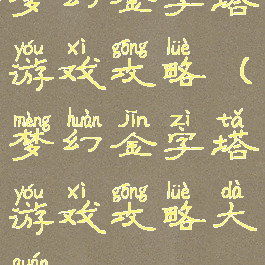 梦幻金字塔
yóu xì gōng lüè
游戏攻略(
mèng huàn jīn zì tǎ
梦幻金字塔
yóu xì gōng lüè dà
游戏攻略大
quán